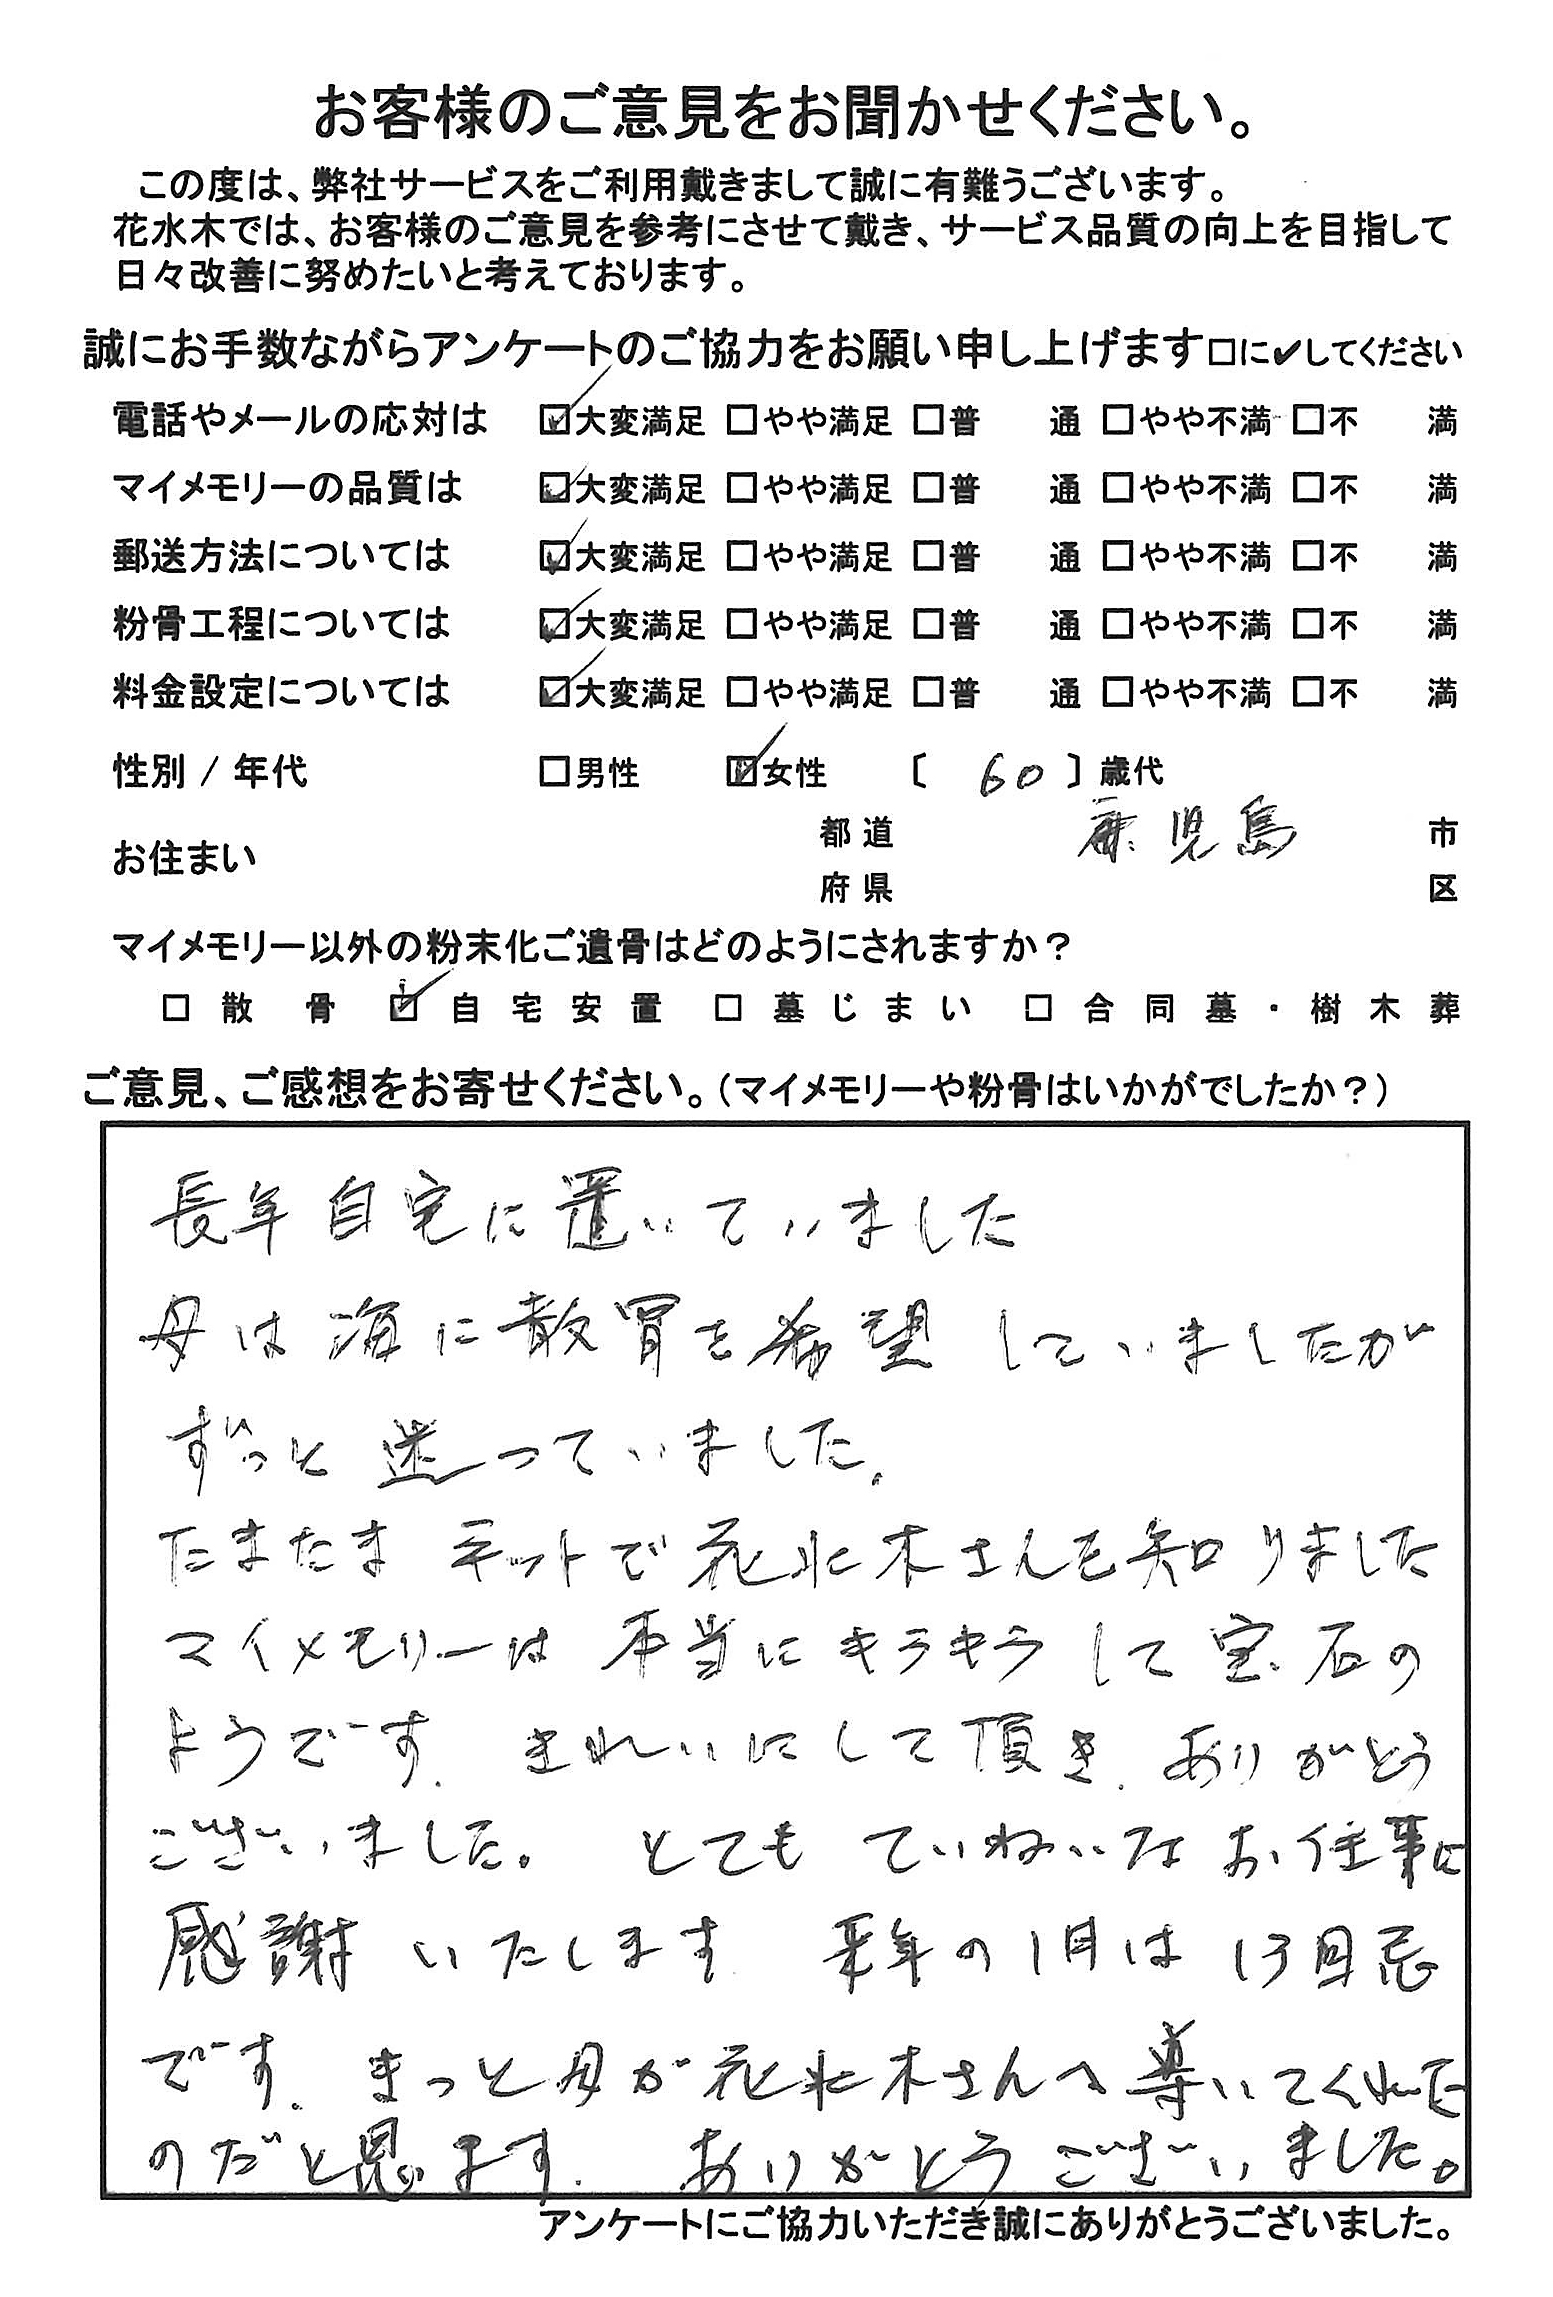 お客様のご意見をお聞かせください。
この度は、弊社サービスをご利用戴きまして誠に有難うございます。
花水木では、お客様のご意見を参考にさせて戴き、サービス品質の向上を目指して
日々改善に努めたいと考えております。
誠にお手数ながらアンケートのご協力をお願い申し上げます□に✔してください
電話やメールの応対は ☑大変満足 □やや満足 □普 通 □やや不満 □不 満
マイメモリーの品質は ☑大変満足 □やや満足 □普 通 □やや不満 □不 満
郵送方法については ☑大変満足 □やや満足 □普 通 □やや不満 □不 満
粉骨工程については ☑大変満足 □やや満足 □普 通 □やや不満 □不 満
料金設定については ☑大変満足 □やや満足 □普 通 □やや不満 □不 満
性別 / 年代 □男性 ☑女性 〔 60 〕歳代
お住まい 都道府県 鹿児島 市区
マイメモリー以外の粉末化ご遺骨はどのようにされますか？
□ 散骨 ☑ 自宅安置 □ 墓じまい □ 合同墓・樹木葬
ご意見、ご感想をお寄せください。（マイメモリーや粉骨はいかがでしたか？）
長年自宅に置いていました
母は海に散骨を希望していましたが
ずっと迷っていました。
たまたまネットで花水木さんを知りました
マイメモリーは本当にキラキラして宝石の
ようです。きれいにして頂き、ありがとう
ございました。とてもていねいなお仕事に
感謝いたします 来年の1月は13回忌
です。きっと母が花水木さんへ導いてくれた
のだと思います。ありがとうございました。
アンケートにご協力いただき誠にありがとうございました。